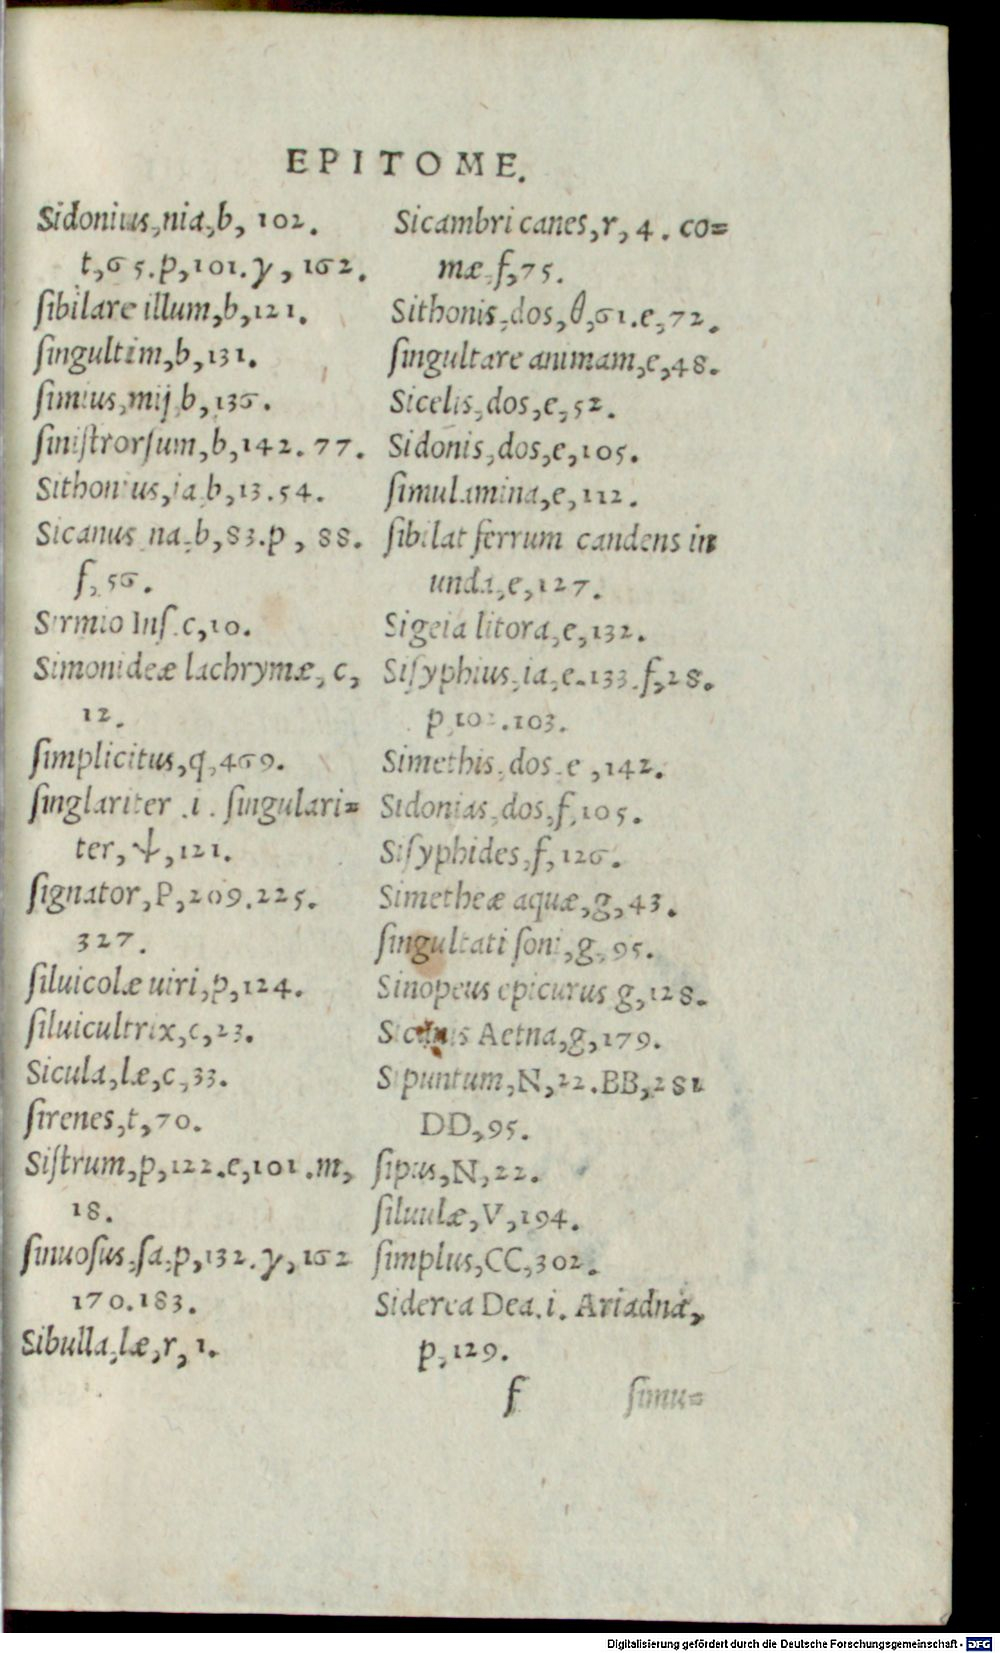 EPITOME.
Sidonius,nia,b, 102.
t,65.p,101.γ, 162.
ſibilare illum,b,121.
ſingultim,b,131.
ſimius,mij b,136.
ſiniſtrorſum,b,142.77.
Sithonius,ia b,13.54.
Sicanus na,b,83.p, 88.
f,56.
Sirmio Inſ.c,10.
Simonideæ lachrymæ, c,
12.
ſimplicitus,q,469.
ſinglariter .i. ſingulari=
ter,ψ,121.
ſignator,P,209.225.
327.
ſiluicolæ uiri,p,124.
ſiluicultrix,c,23.
Sicula,læ,c,33.
ſirenes,t,70.
Siſtrum,p,122.e,101.m,
18.
ſinuoſus,ſa,p,132.γ,162
170.183.
Sibulla,læ,r,1.
Sicambri canes,r,4. co=
mæ,f,75.
Sithonis,dos,θ,61.e,72.
ſingultare animam,e,48.
Sicelis,dos,e,52.
Sidonis,dos,e,105.
ſimulamina,e,112.
ſibilat ferrum candens in
unda,e,127.
Sigeia litora,e,132.
Siſyphius,ia,e.133.f,28.
p 102.103.
Simethis,dos,e,142.
Sidonias,dos,f,105.
Siſyphides,f,126.
Simetheæ aquæ,g,43.
ſingultati ſoni,g,95.
Sinopeus epicurus g,128.
Aetna,g,179.
Sipuntum,N,22.BB,281
DD,95.
ſipus,N,22.
ſiluulæ,V,194.
ſimplus,CC,302.
Siderea Dea.i. Ariadnæ,
p,129.
f ſimu=
Digitalisierung gefördert durch die Deutsche Forschungsgemeinschaft - DFG